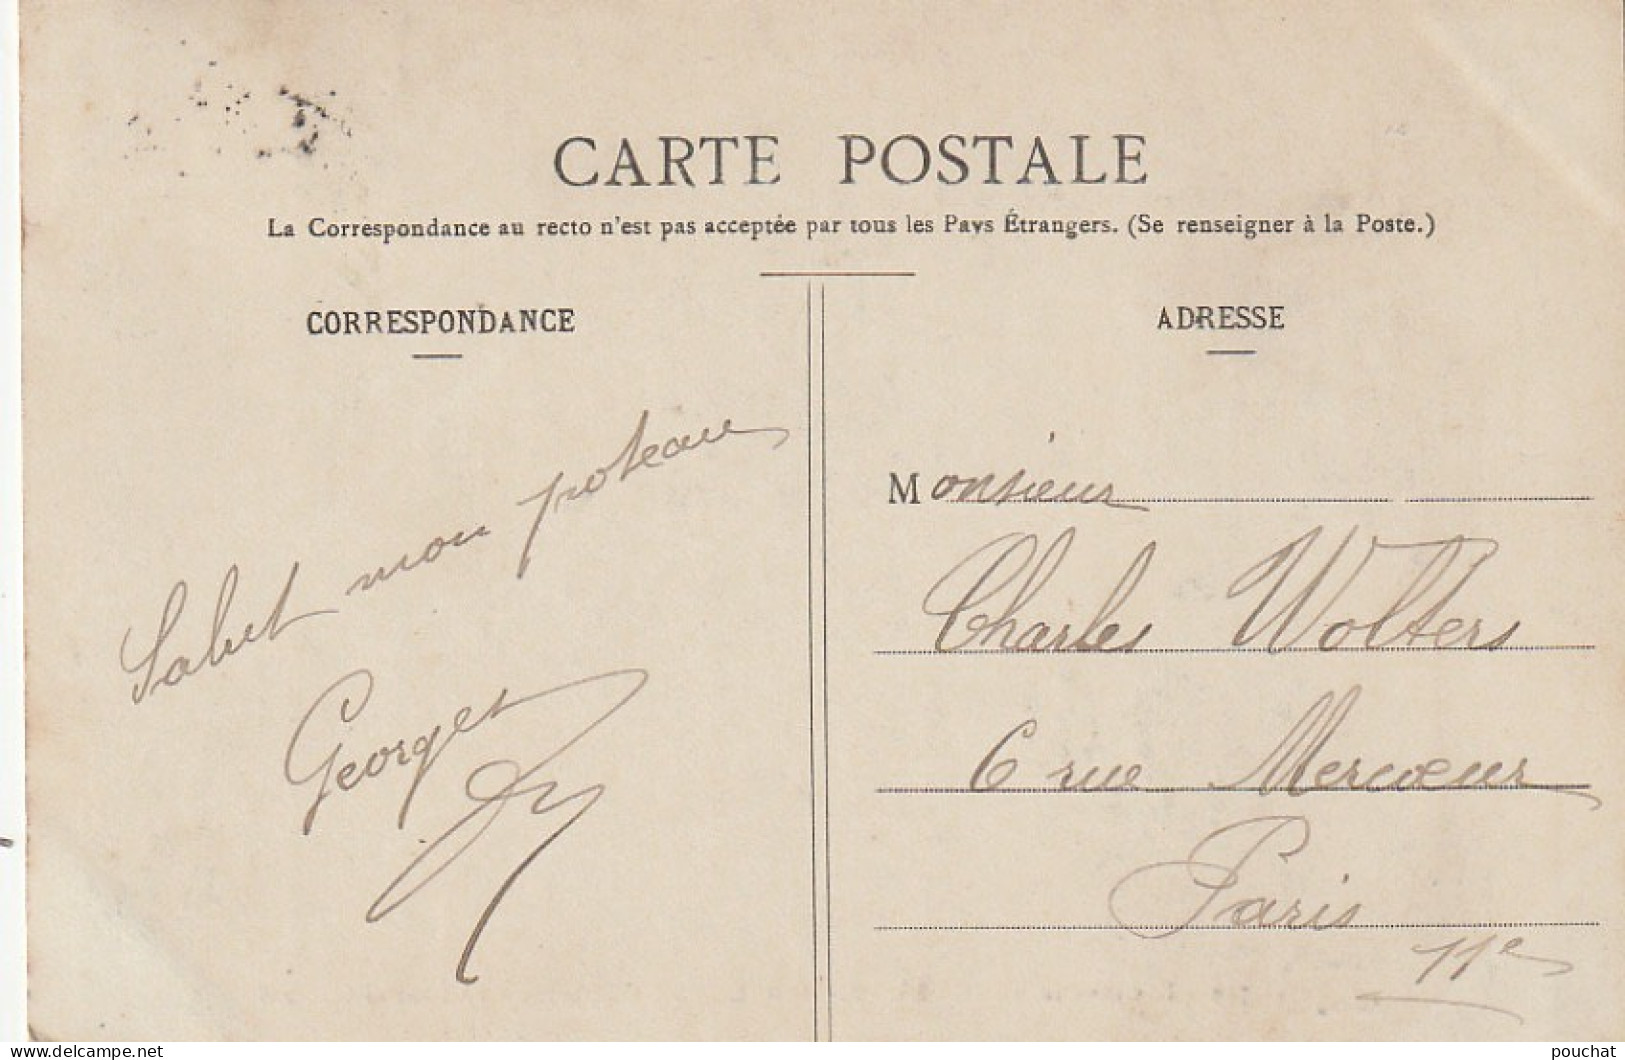 CARTE POSTALE
La Correspondance au recto n'est pas acceptée par tous les Pays Étrangers. (Se renseigner à la Poste.)
CORRESPONDANCE
Salut mon poteau
Georges
ADRESSE
Monsieur
Charles Wolters
6 rue Mercœur
Paris
11e
delcampe.net
pouchat